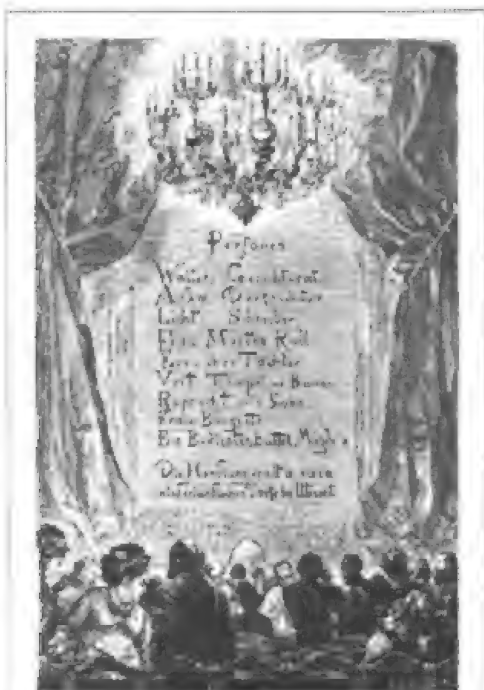 Personen
Walter, Gerichtsrat
Adam, Dorfrichter
Licht, Schreiber
Frau Marthe Rull
ihre Tochter
Veit Tümpel, ein Bauer
Ruprecht, sein Sohn
Frau Brigitte
Ein Bedienter, Büttel, Mägde
Die Handlung
niederländischen Dorfe bei Utrecht